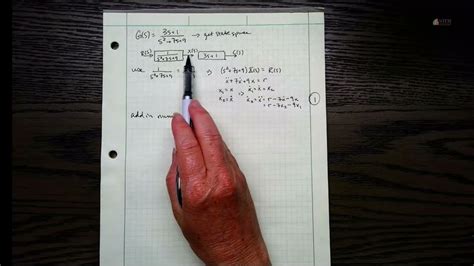 G(s) = 3s+1 / s²+7s+9 → get state space
R(s) → [1 / s²+7s+9] X(s) → [3s+1] → C(s)
use 1 / s²+7s+9 = ⇒ (s²+7s+9) X(s) = R(s)
ẍ + 7ẋ + 9x = r
x₁ = x ⇒ ẋ₁ = ẋ = x₂
x₂ = ẋ ẋ₂ = ẍ = r - 7ẋ - 9x
= r - 7x₂ - 9x₁ ①
add in num